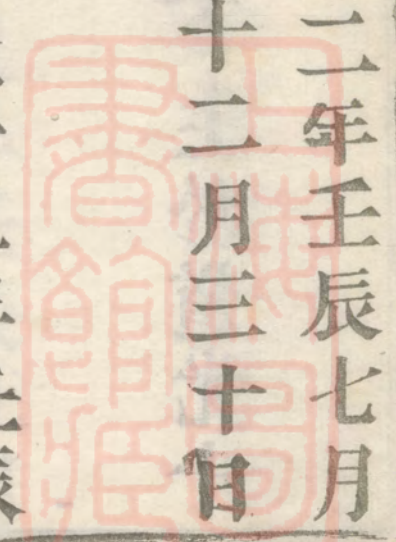 二年壬辰七月
十二月三十日
上海圖書館藏